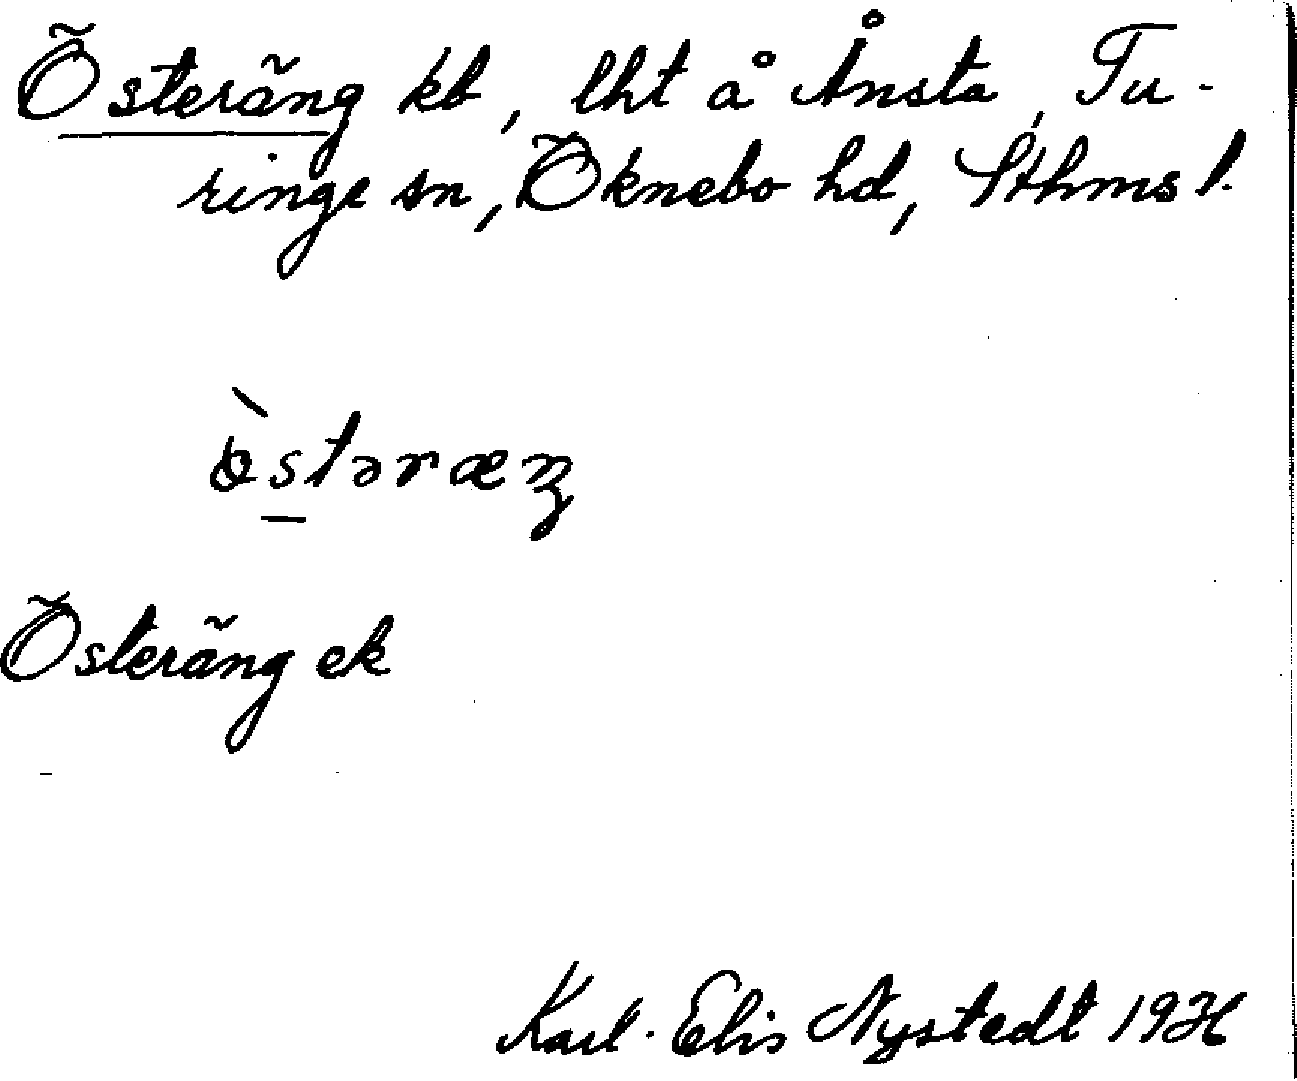 Österäng kb, lht å Ånsta, Tu-
ringe sn, Öknebo hd, Sthms l.
ò̱stəræŋ
Österäng ek
Karl-Elis Nystedt 1936